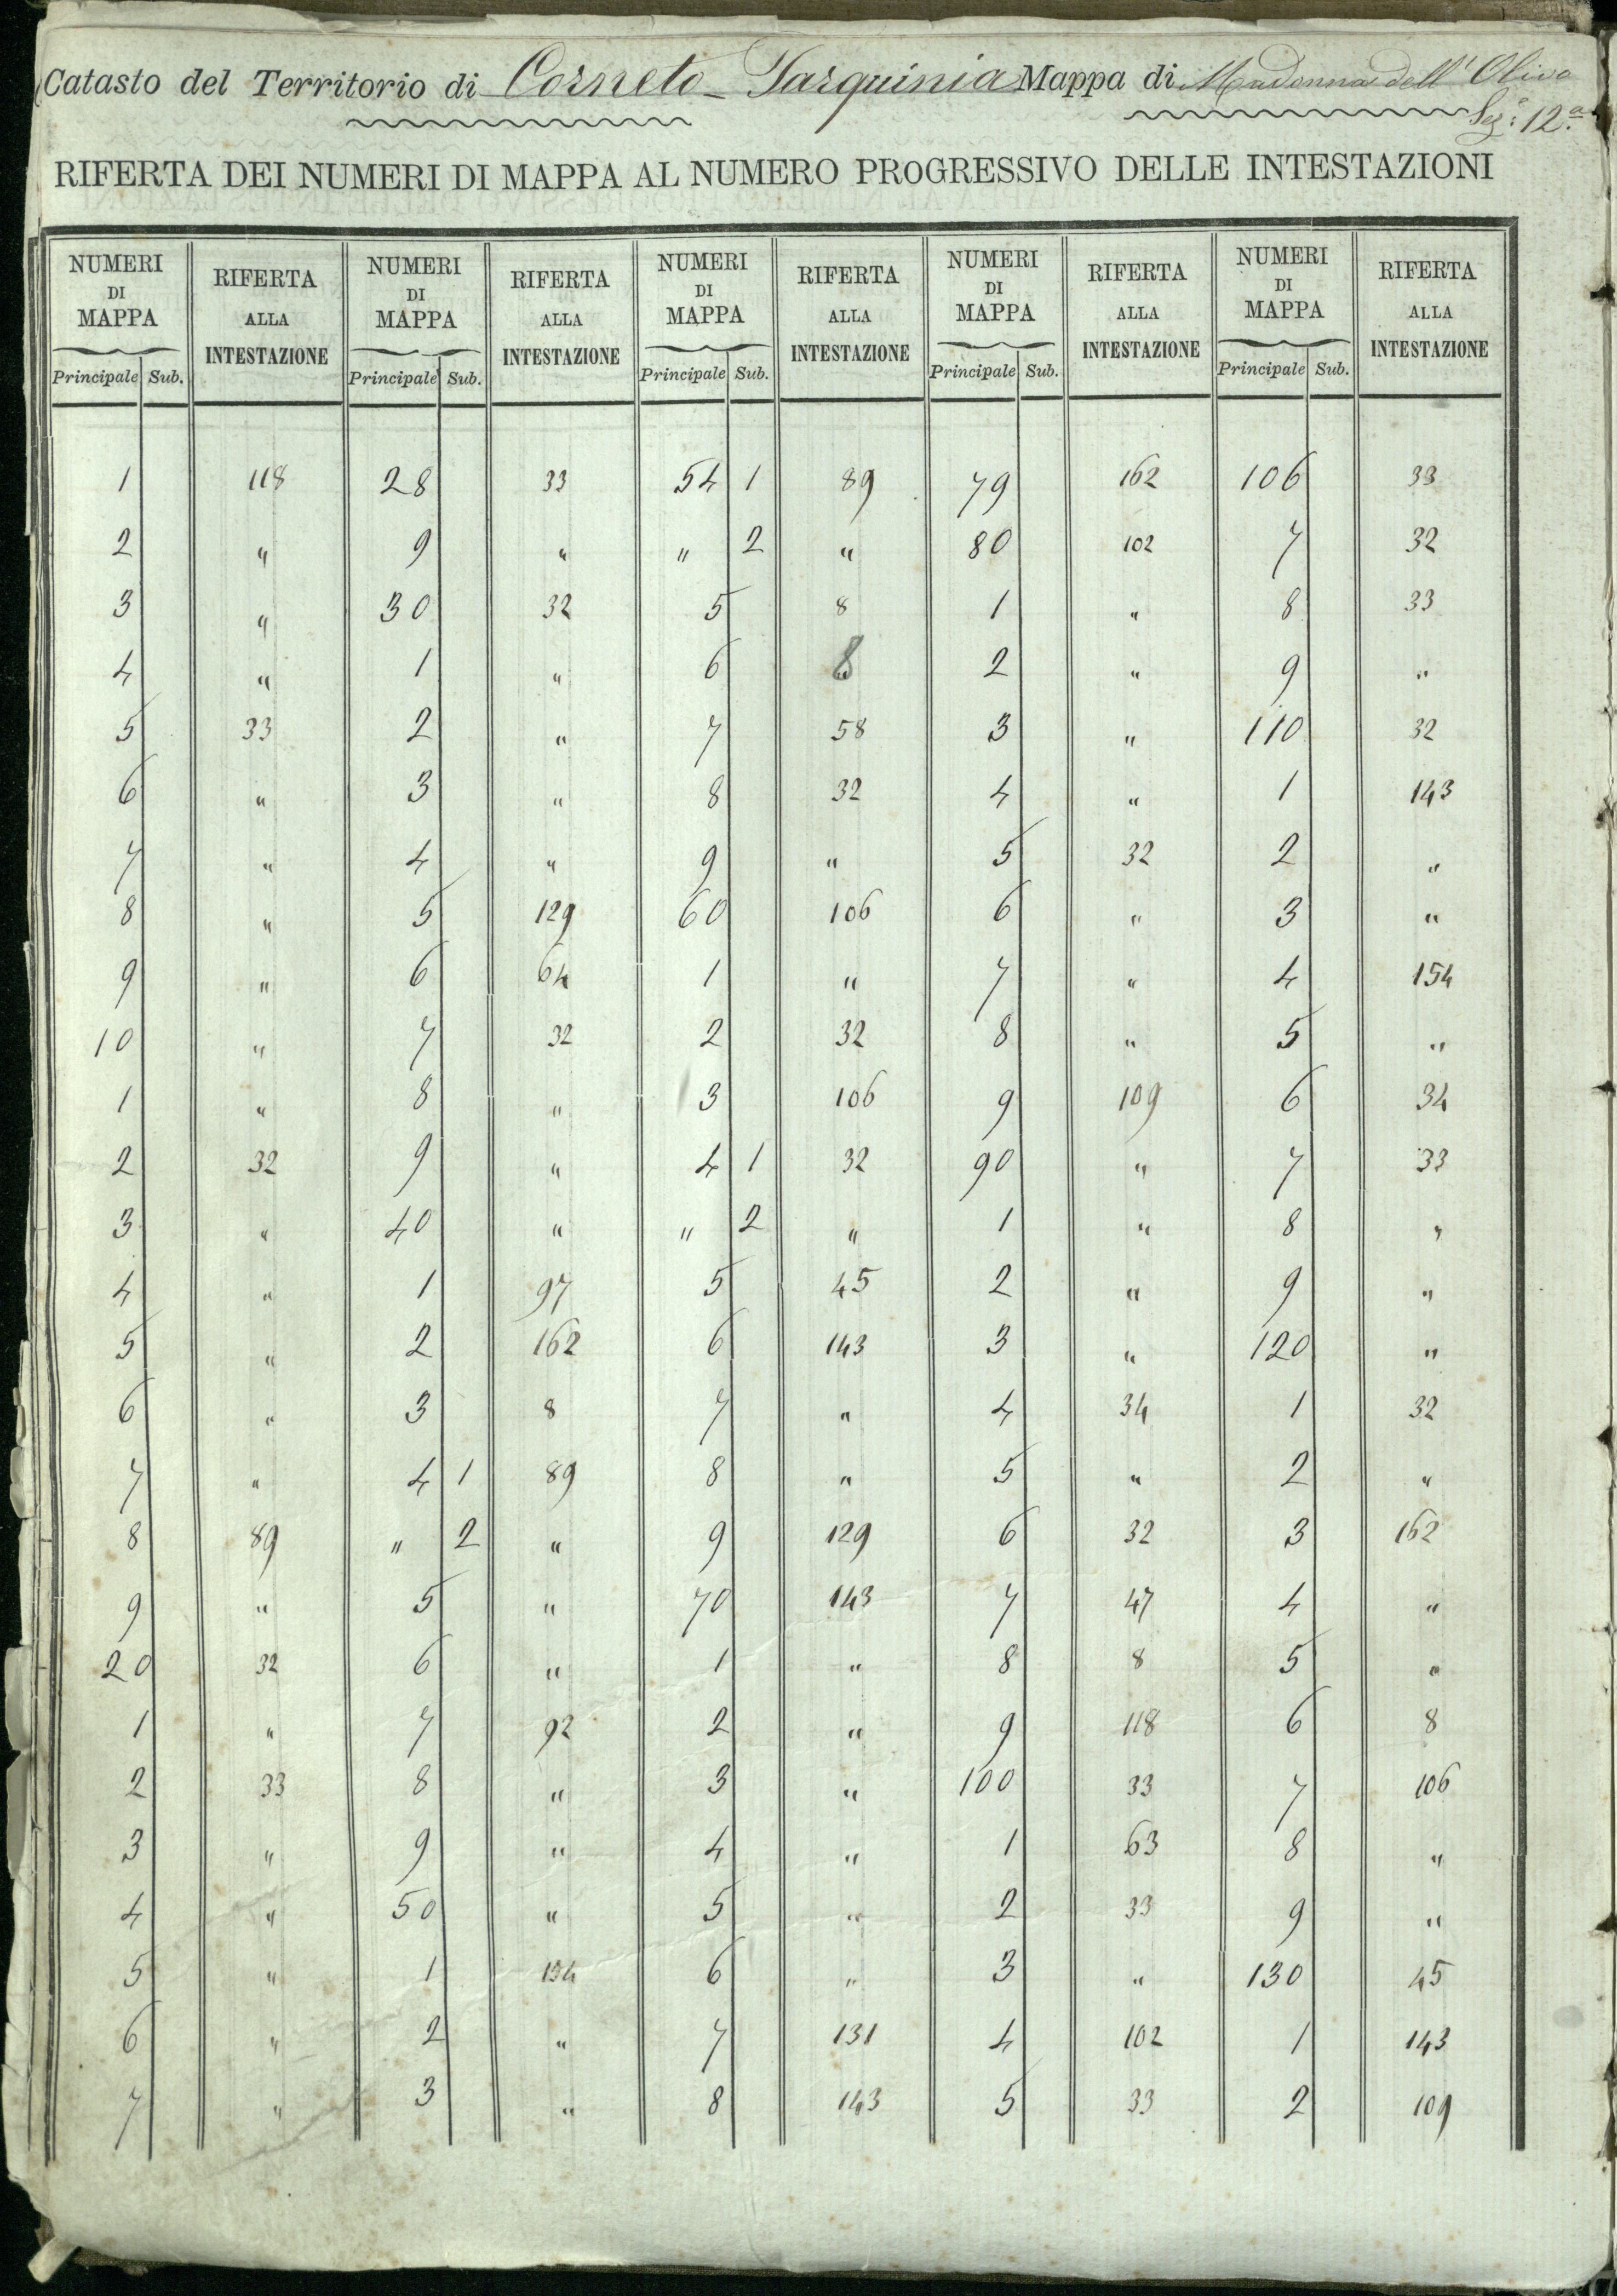 Catasto del Territorio di Corneto - Tarquinia Mappa di Madonna dell' Olivo
Sez. 12.a
RIFERTA DEI NUMERI DI MAPPA AL NUMERO PROGRESSIVO DELLE INTESTAZIONI
NUMERI DI MAPPA RIFERTA ALLA INTESTAZIONE NUMERI DI MAPPA RIFERTA ALLA INTESTAZIONE NUMERI DI MAPPA RIFERTA ALLA INTESTAZIONE NUMERI DI MAPPA RIFERTA ALLA INTESTAZIONE NUMERI DI MAPPA RIFERTA ALLA INTESTAZIONE
Principale Sub. Principale Sub. Principale Sub. Principale Sub. Principale Sub.
1 118 28 33 54 1 89 79 162 106 33
2 " 9 " " 2 " 80 102 7 32
3 " 30 32 5 8 1 " 8 33
4 " 1 " 6 8 2 " 9 "
5 33 2 " 7 58 3 " 110 32
6 " 3 " 8 32 4 " 1 143
7 " 4 " 9 " 5 32 2 "
8 " 5 129 60 106 6 " 3 "
9 " 6 64 1 " 7 " 4 154
10 " 7 32 2 32 8 " 5 "
1 " 8 " 3 106 9 109 6 34
2 32 9 " 4 1 32 90 " 7 33
3 " 40 " " 2 " 1 " 8 "
4 " 1 97 5 45 2 " 9 "
5 " 2 162 6 143 3 " 120 "
6 " 3 8 7 " 4 34 1 32
7 " 4 1 89 8 " 5 " 2 "
8 89 " 2 " 9 129 6 32 3 162
9 " 5 " 70 143 7 47 4 "
20 32 6 " 1 " 8 8 5 "
1 " 7 92 2 " 9 118 6 8
2 33 8 " 3 " 100 33 7 106
3 " 9 " 4 " 1 63 8 "
4 " 50 " 5 " 2 33 9 "
5 " 1 154 6 " 3 " 130 45
6 " 2 " 7 131 4 102 1 143
7 " 3 " 8 143 5 33 2 109